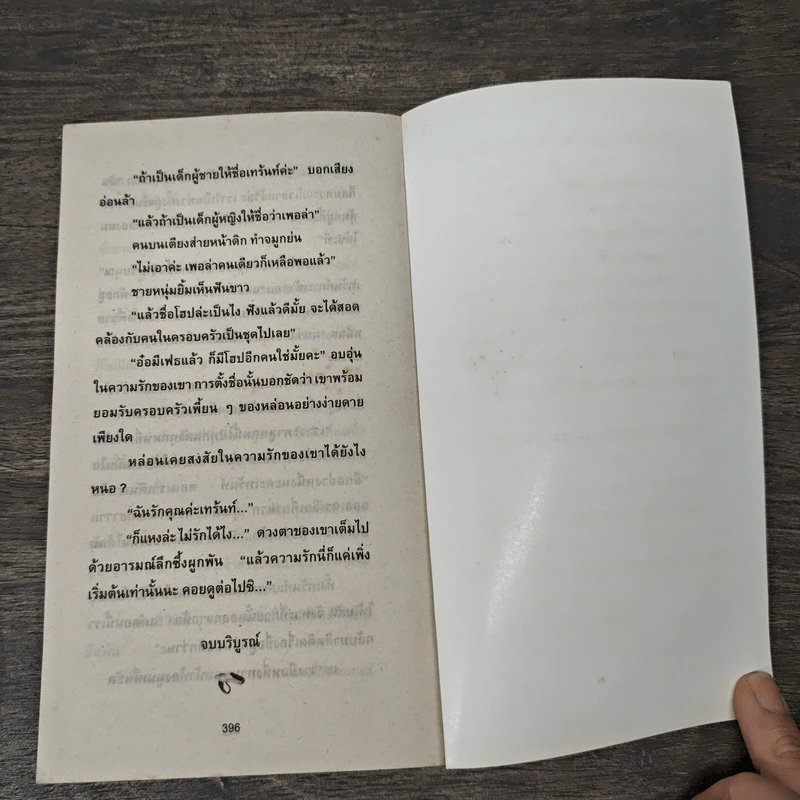 “ถ้าเป็นเด็กผู้ชายให้ชื่อเทร้นท์ค่ะ” บอกเสียง
อ่อนล้า
“แล้วถ้าเป็นเด็กผู้หญิงให้ชื่อว่าเพอล่า”
คนบนเตียงส่ายหน้าดิก ทำจมูกย่น
“ไม่เอาค่ะ เพอล่าคนเดียวก็เหลือพอแล้ว”
ชายหนุ่มยิ้มเห็นฟันขาว
“แล้วชื่อโฮปล่ะเป็นไง ฟังแล้วดีมั้ย จะได้สอด
คล้องกับคนในครอบครัวเป็นชุดไปเลย”
“อ๋อมีเฟธแล้ว ก็มีโฮปอีกคนใช่มั้ยคะ” อบอุ่น
ในความรักของเขา การตั้งชื่อนั้นบอกชัดว่า เขาพร้อม
ยอมรับครอบครัวเพี้ยน ๆ ของหล่อนอย่างง่ายดาย
เพียงใด
หล่อนเคยสงสัยในความรักของเขาได้ยังไง
หนอ ?
“ฉันรักคุณค่ะเทร้นท์...”
“ก็แหงล่ะ ไม่รักได้ไง...” ดวงตาของเขาเต็มไป
ด้วยอารมณ์ลึกซึ้งผูกพัน “แล้วความรักนี่ก็แค่เพิ่ง
เริ่มต้นเท่านั้นนะ คอยดูต่อไปซิ...”
จบบริบูรณ์
396